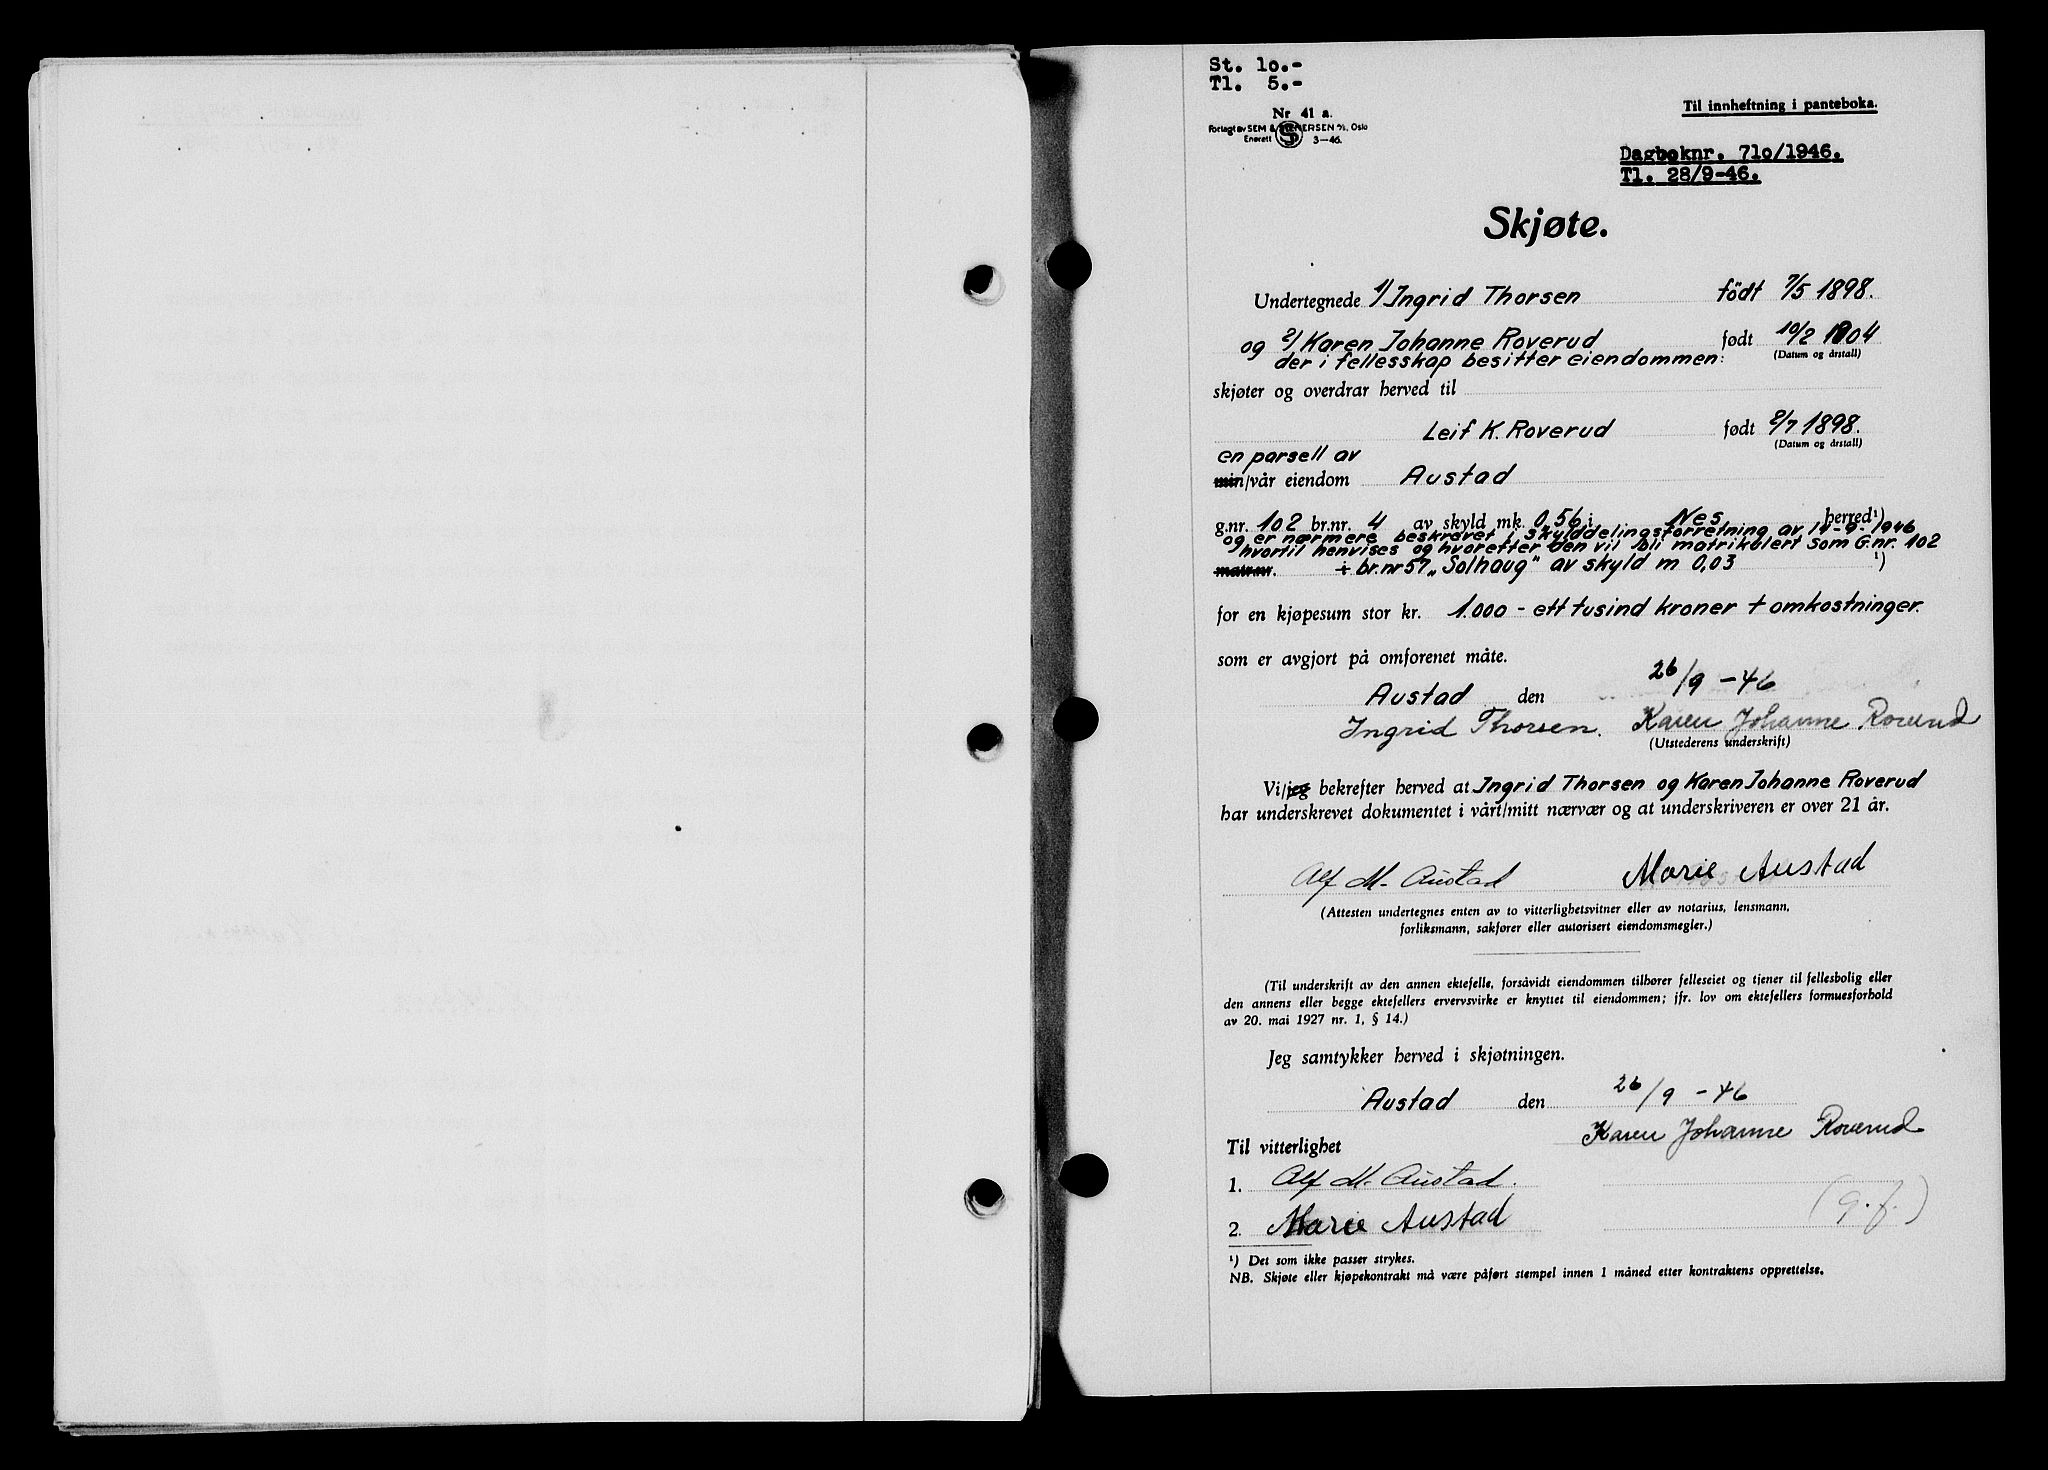 St. 1o.-
Tl. 5.-
Nr 41 a.
Forlagt av SEM & STENERSEN A/S, Oslo
Enerett 3-46.
Til innheftning i panteboka.
Dagboknr. 71o/1946.
Tl. 28/9-46.
Skjøte.
Undertegnede 1/ Ingrid Thorsen født 7/5 1898.
og 2/ Karen Johanne Roverud født 10/2 1904
der i fellesskap besitter eiendommen: (Datum og årstall)
skjøter og overdrar herved til
Leif K. Roverud født 8/7 1898.
(Datum og årstall)
en parsell av
min/vår eiendom Austad
g.nr. 102 br.nr. 4 av skyld mk. 0,56 i Nes herred¹)
og er nærmere beskrevet i skylddelingsforretning av 14-9-1946
hvortil henvises og hvoretter den vil bli matrikulert som G.nr. 102
matr.nr. i br.nr 57 „Solhaug" av skyld m 0,03 ¹)
for en kjøpesum stor kr. 1.000 - ett tusind kroner + omkostninger.
som er avgjort på omforenet måte.
Austad den 26/9 - 46
Ingrid Thorsen. Karen Johanne Roverud
(Utstederens underskrift)
Vi/jeg bekrefter herved at Ingrid Thorsen og Karen Johanne Roverud
har underskrevet dokumentet i vårt/mitt nærvær og at underskriveren er over 21 år.
Alf M. Austad Marie Austad
(Attesten undertegnes enten av to vitterlighetsvitner eller av notarius, lensmann,
forliksmann, sakfører eller autorisert eiendomsmegler.)
(Til underskrift av den annen ektefelle, forsåvidt eiendommen tilhører felleseiet og tjener til fellesbolig eller
den annens eller begge ektefellers ervervsvirke er knyttet til eiendommen; jfr. lov om ektefellers formuesforhold
av 20. mai 1927 nr. 1, § 14.)
Jeg samtykker herved i skjøtningen.
Austad den 26/9 - 46
Karen Johanne Roverud
Til vitterlighet
1. Alf M. Austad.
(g.f.)
2. Marie Austad
¹) Det som ikke passer strykes.
NB. Skjøte eller kjøpekontrakt må være påført stempel innen 1 måned etter kontraktens opprettelse.